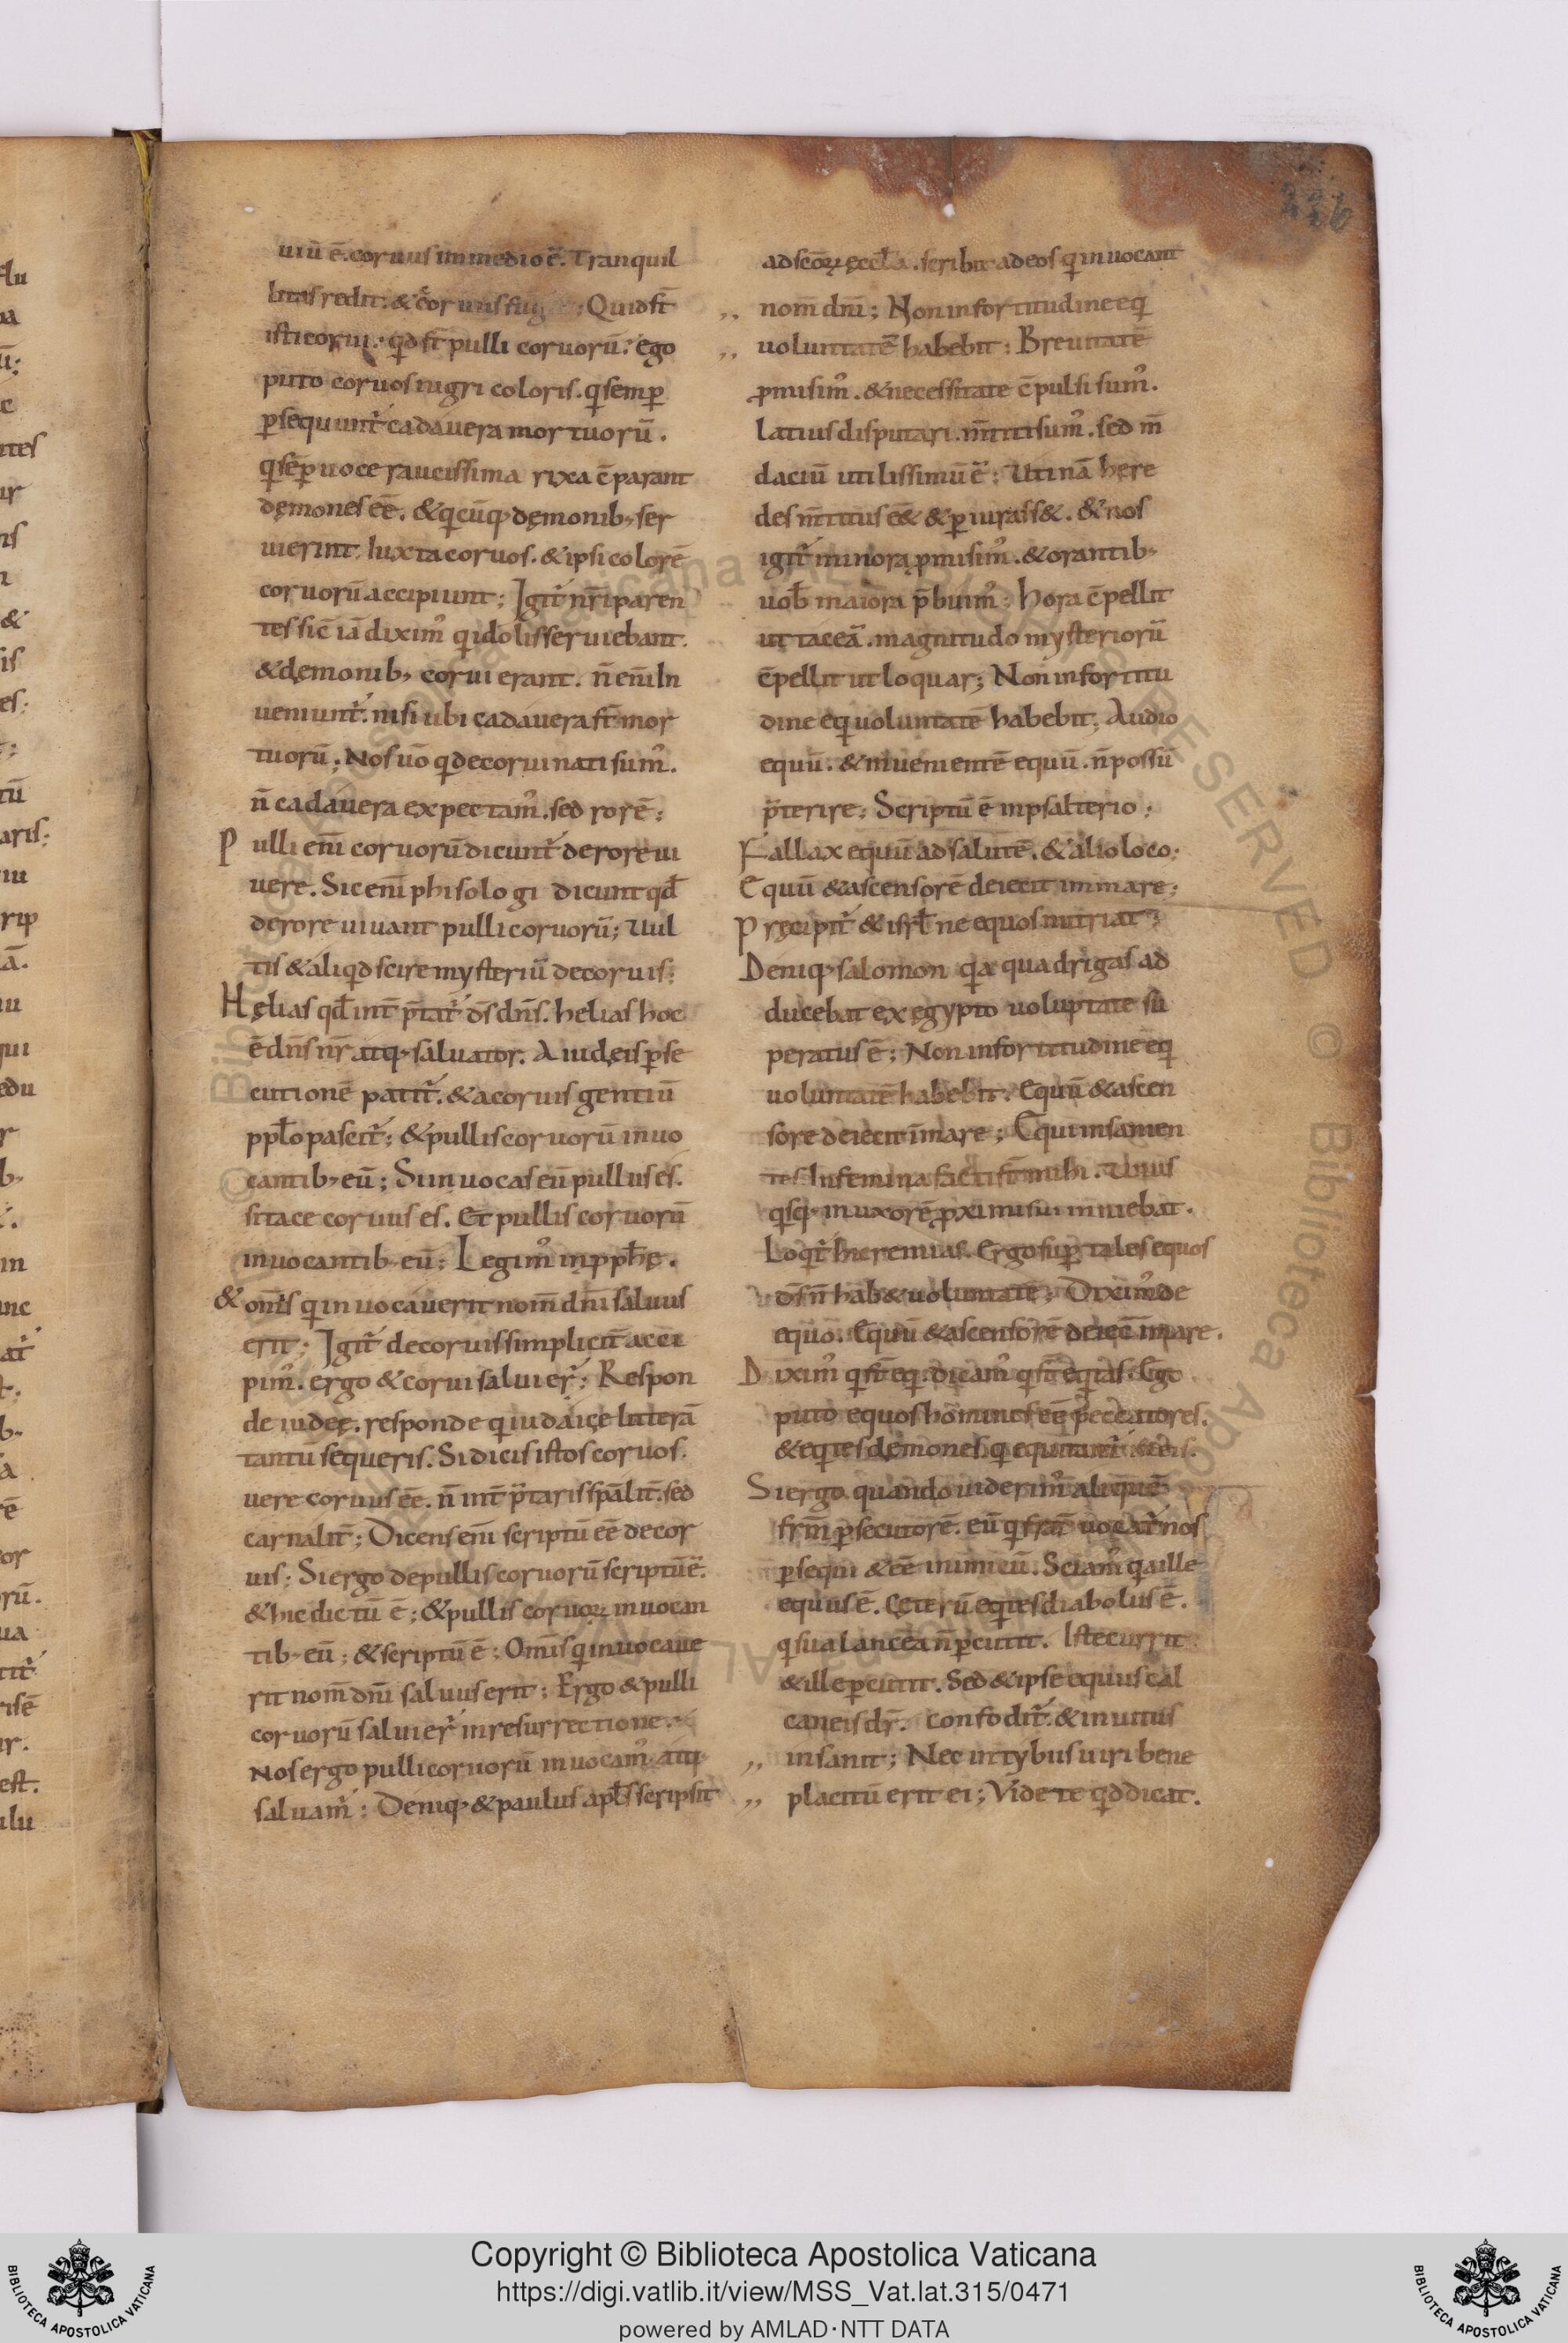 uiū ē. coruus in medio ē. Tranquil
litas redit. & coruus fug ; Quid st̄
isti corui. qd st̄ pulli coruorū. ego
puto coruos nigri coloris. q semp
psequunt̄ cadauera mortuorū.
q sēp uoce raucissima rixa c̄parant
dęmones eē. & qcūq; dęmonib; ser
uierint. Iuxta coruos. & ipsi colorē
coruorū accipiunt; Igit̄ nr̄i paren
tes sic̄ iā dixim᾿ q idolis seruiebant.
& dęmonib; corui erant. n̄ eni̅ In
ueniunt̄. nisi ubi cadauera st̄ mor
tuorū; Nos uō q de coruis nati sum᾿.
n̄ cadauera expectam᾿. sed rorē;
Pulli eni̅ coruorū dicunt̄ de rore ui
uere. Sic eni̅ phisologi dicunt qđ
de rore uiuant pulli coruorū; Uul
tis & aliqd scire mysteriū de coruis;
Hęlias qđ int̄ p̄tat̄ dš dn̄s. helias hoc
ē dn̄s nr̄ atq; saluator. A iudęis pse
cutionē patit̄. & a coruis gentiū
pplo pascit̄; & pullis coruorū inuo
cantib; eū; Si inuocas eū pullus es.
si tace coruus es. Et pullis coruorū
inuocantib; eū; Legim᾿ in pphę.
& om̄is q inuocauerit nom̄ dn̄i saluus
erit; Igit̄ de coruis simplicit̄ acci
pim᾿. ergo & corui salui er̄; Respon
de iudęę. responde q iudaicę litterā
tantū sequeris. Si dicis istos coruos.
uere coruus eē. n̄ int̄ p̄taris spālit̄. sed
carnalit̄; Dicens eni̅ scriptū eē de cor
uis; Si ergo de pullis coruorū scriptū ē.
& hic dictū ē; & pullis coruoꝝ inuocan
tib; eū; & scriptū ē; Om̄is q inuocaue
rit nom̄ dn̄i saluus erit; Ergo & pulli
coruorū salui er̄ in resurrectione.
Nos ergo pulli coruorū inuocam᾿
saluam̄; Deniq; & paulus apl̄s scripsit
ad scōꝝ ęccl̄a. scribit ad eos q inuocant
,, nom̄ dn̄i; Non in fortitudine eq
,, uoluntatē habebit; Breuitatē
pmisim᾿. & necessitate c̄pulsi sum᾿.
Latius disputari. m̄titi sum᾿. sed m̄
daciū utilissimū ē; Utinā here
des m̄titus eē& & piurass&. & nos
igit̄ minora pmisim᾿. & orantib;
uob̄ maiora p̄buim᾿; Hora c̄pellit
ut taceā. magnitudo mysteriorū
c̄pellit ut loquar; Non in fortitu
dine eq uoluntatē habebit; Audio
equū. & inuenientē equū. n̄ possū
p̄terire; Scriptū ē in psalterio;
Fallax equū ad salutē. & alio loco;
Equū & ascensorē deiecit in mare;
Pręcipit̄ & isrl̄ ne equos nutriat;
Deniq; salomon qa quadrigas ad
ducebat ex ęgypto uoluptate su
peratus ē; Non in fortitudine eq
uoluntatē habebit. Equū & ascen
sore deiecit ī mare; Equi insanien
tes In femina facti st̄ mihi. Unus
qsq; in uxorē pximi sui inniebat.
Loqt̄ hieremias. Ergo sup tales equos
dš n̄ hab& uoluntatē; Dixim᾿ de
equo. Equū & ascensorē deiec̄ ī mare.
Dixim᾿ q st̄ eq. dicam᾿ q st̄ eqtes. Ego
puto equos homines eē peccatores.
& eqtes dęmones q equitant̄ in eis.
Si ergo quando uiderim᾿ aliquē
fr̄m psecutorē. eū q frat̄ uocat̄ nos
psequi & eē inimicū. Sciam᾿ qa ille
equus ē. Cęterū eqtes diabolus ē.
q sua lancea n̄ pcutit. Iste currit
& ille pcutit. Sed & ipse equus cal
caneis dr̄. confodit̄. & inuitus
,, insanit; Nec in tybus uiri bene
,, placitū erit ei; Videte qd dicat.
226
Copyright © Biblioteca Apostolica Vaticana
https://digi.vatlib.it/view/MSS_Vat.lat.315/0471
powered by AMLAD·NTT DATA
BIBLIOTECA APOSTOLICA VATICANA
BIBLIOTECA APOSTOLICA VATICANA